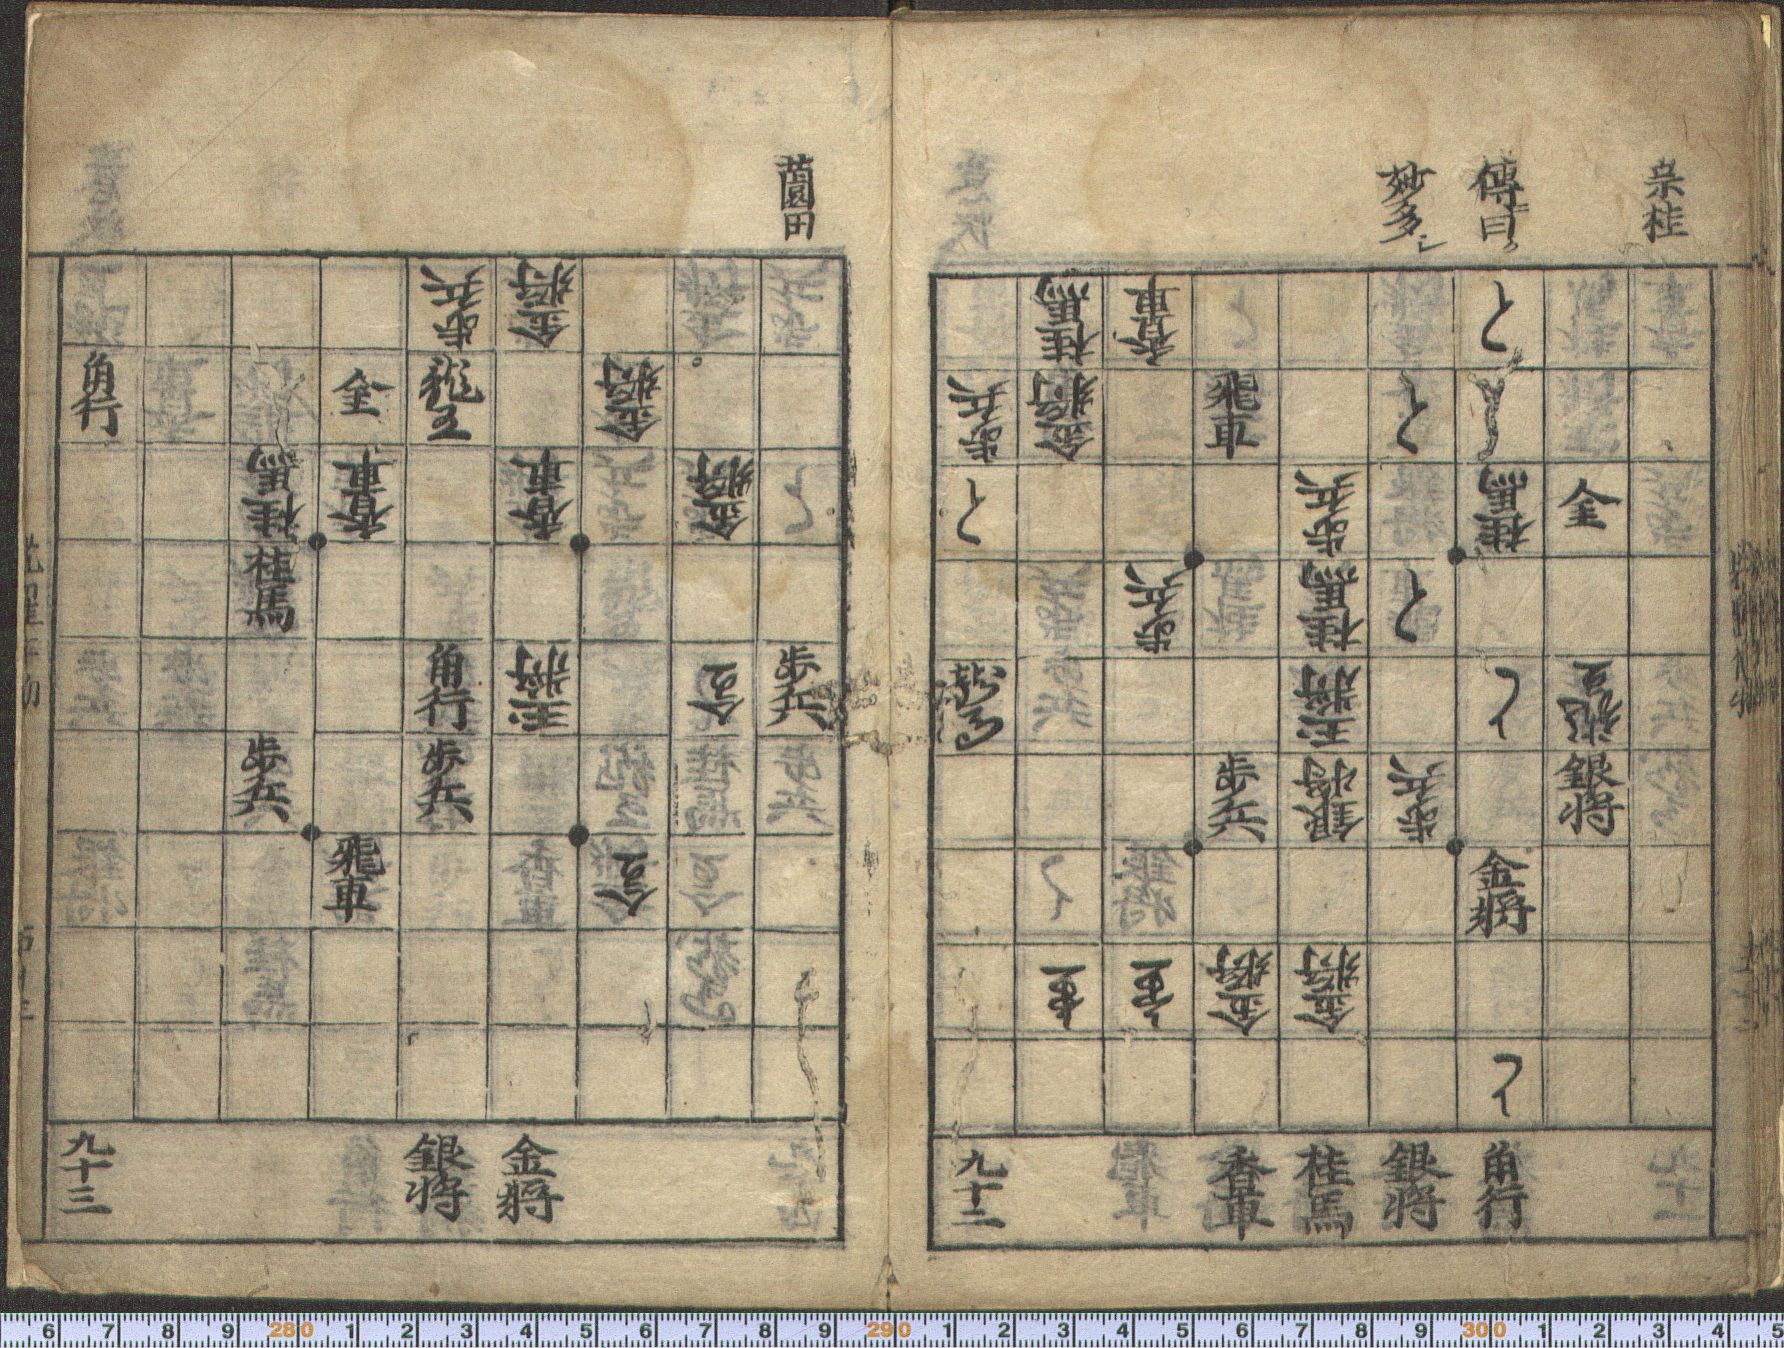 宗桂
傳曰
妙多シ
と 香車 桂馬
と 飛車 金将 歩兵
全 桂馬 歩兵 と
と 桂馬 歩兵
と 玉将 龍馬
銀将 歩兵 銀将 歩兵
金将
金将 金将
と
角行 銀将 桂馬 香車 九十二
薗田
金将 歩兵
金将 龍王 全 角行
と 金将 香車 香車 桂馬
桂馬
歩兵 玉将 角行
歩兵 歩兵
飛車
金将 銀将 九十三